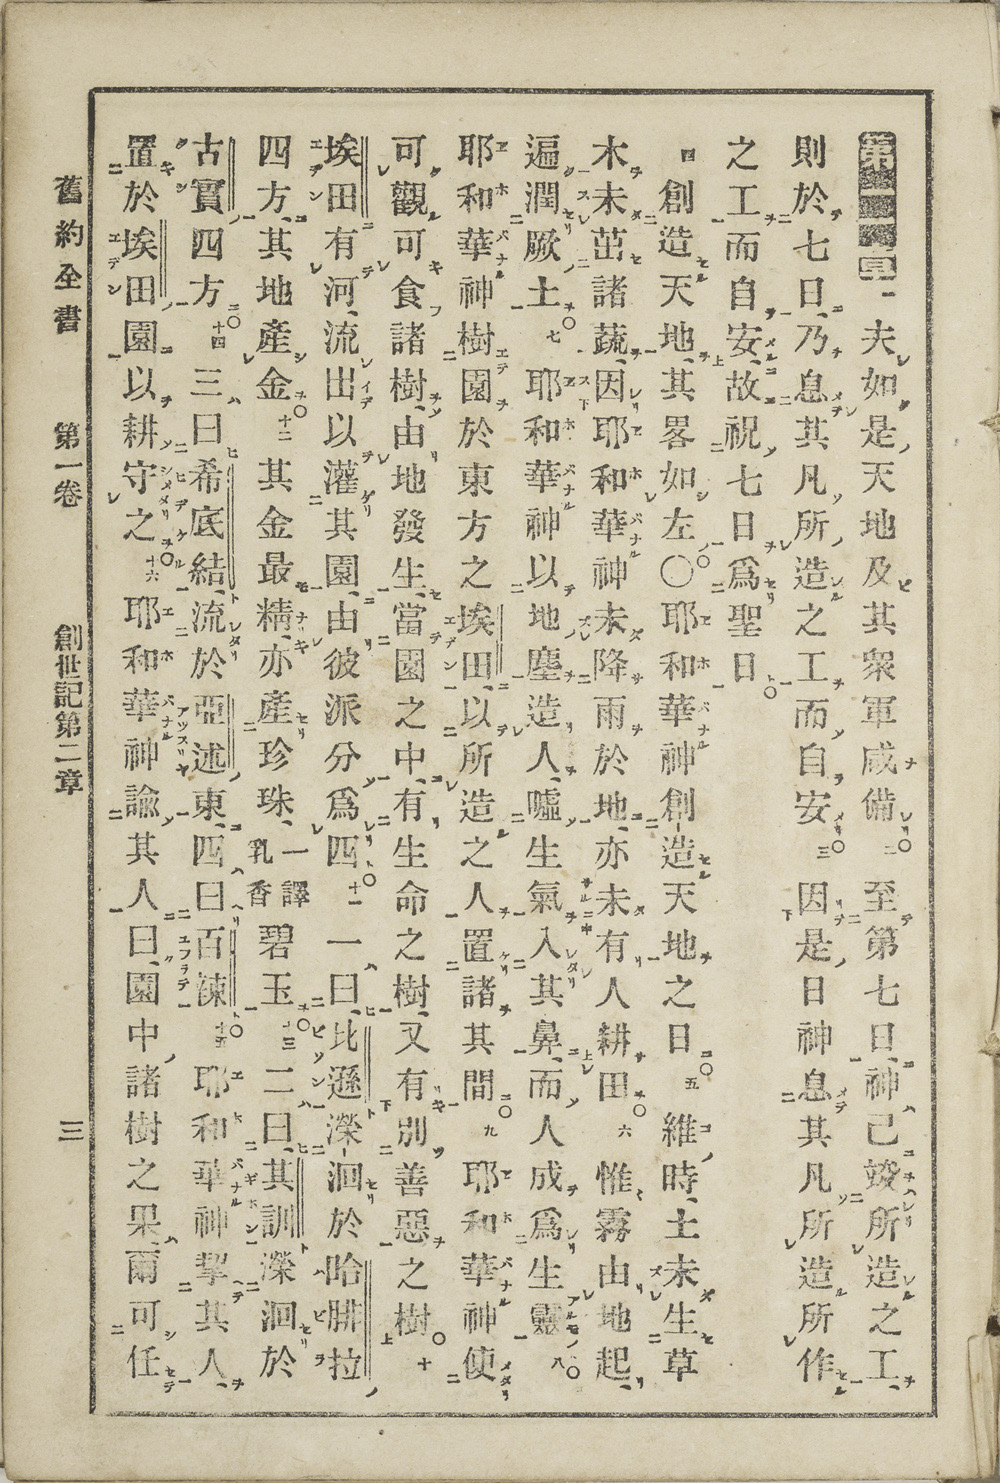 第二章一夫如是天地及其衆軍咸備○二至第七日、神已竣所造之工、
則於七日、乃息其凡所造之工而自安○三因是日神息其凡所造所作
之工而自安、故祝七日爲聖日○
四創造天地、其畧如左○耶和華神創造天地之日○五維時、土未生草
木未茁諸蔬、因耶和華神未降雨於地、亦未有人耕田○六惟霧由地起、
遍潤厥土○七耶和華神以地塵造人、噓生氣入其鼻、而人成爲生靈○八
耶和華神樹園於東方之埃田、以所造之人置諸其間○九耶和華神使
可觀可食諸樹、由地發生、當園之中、有生命之樹、又有別善惡之樹○十
埃田有河、流出以灌其園、由彼派分爲四○十一一曰、比遜、濚洄於哈腓拉
四方、其地產金○十二其金最精、亦產珍珠、一譯乳香碧玉○十三二曰、其訓濚洄於
古實四方○十四三曰希底結、流於亞述東、四曰百辣○十五耶和華神挈其人、
置於埃田園以耕守之○十六耶和華神諭其人曰、園中諸樹之果、爾可任
舊約全書　第一卷　創世記第二章　三